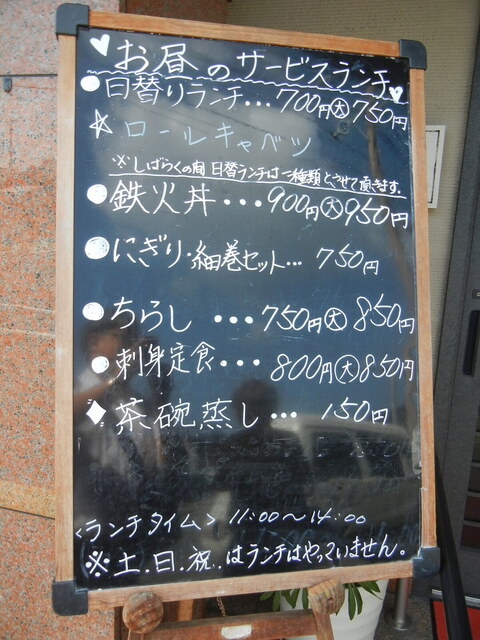 ♡お昼のサービスランチ♡
●日替りランチ…700円㊛750円
☆ロールキャベツ
※しばらくの間 日替ランチは一種類とさせて頂きます。
●鉄火丼…900円大950円
●にぎり・細巻セット…750円
●ちらし…750円大850円
●刺身定食…800円大850円
◆茶碗蒸し…150円
<ランチタイム> 11:00〜14:00
※土.日.祝.はランチはやっていません。